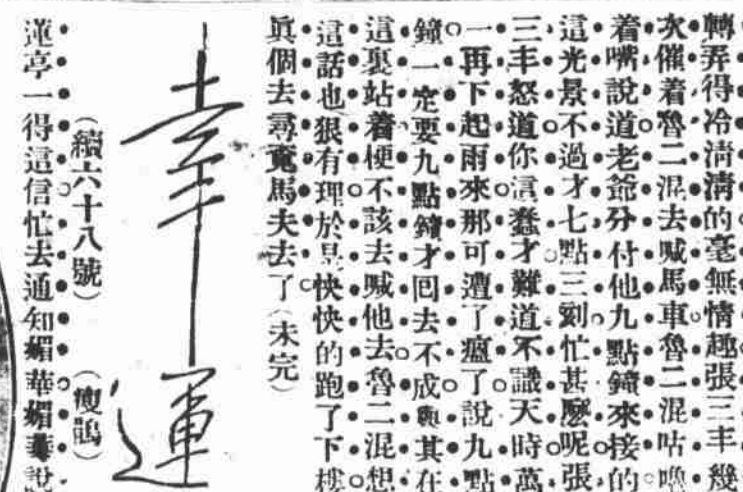 轉弄得冷清清的毫無情趣張三丰幾
次催着魯二混去喊馬車魯二混咕嚕
着嘴說道老爺分付他九點鐘來接的
這光景不過才七點三刻忙甚麼呢張
三丰怒道你這蠢才難道不識天時萬
一再下起雨來那可遭了瘟了說九點
鐘一定要九點鐘才回去不成興其在
這裏站着梗不該去喊他去魯二混想
這話也狠有理於是快快的跑了下樓
眞個去尋覓馬夫去了(未完)
幸運
(續六十八號) (瘦鵑)
蓮亭一得這信忙去通知媚華媚華說